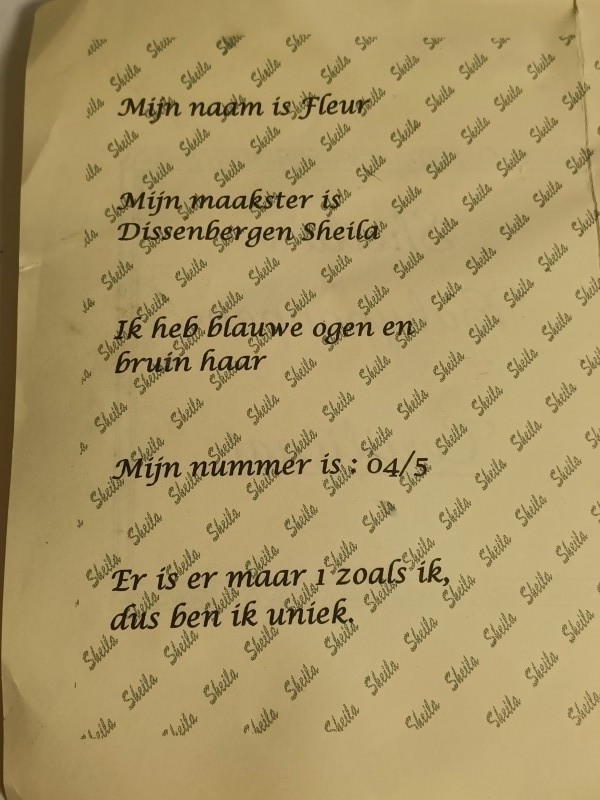 Mijn naam is Fleur
Mijn maakster is
Dissenbergen Sheila
Ik heb blauwe ogen en
bruin haar
Mijn nummer is : 04/5
Er is er maar 1 zoals ik,
dus ben ik uniek.